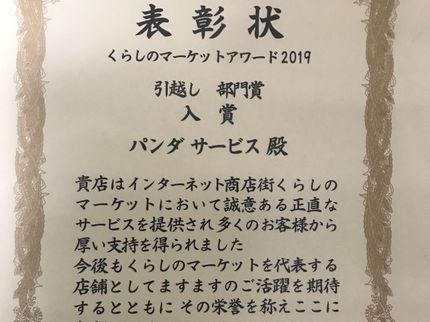 表彰状
くらしのマーケットアワード2019
引越し 部門賞
入賞
パンダ サービス 殿
貴店はインターネット商店街くらしの
マーケットにおいて誠意ある正直な
サービスを提供され多くのお客様から
厚い支持を得られました
今後もくらしのマーケットを代表する
店舗としてますますのご活躍を期待
するとともに その栄誉を称えここに